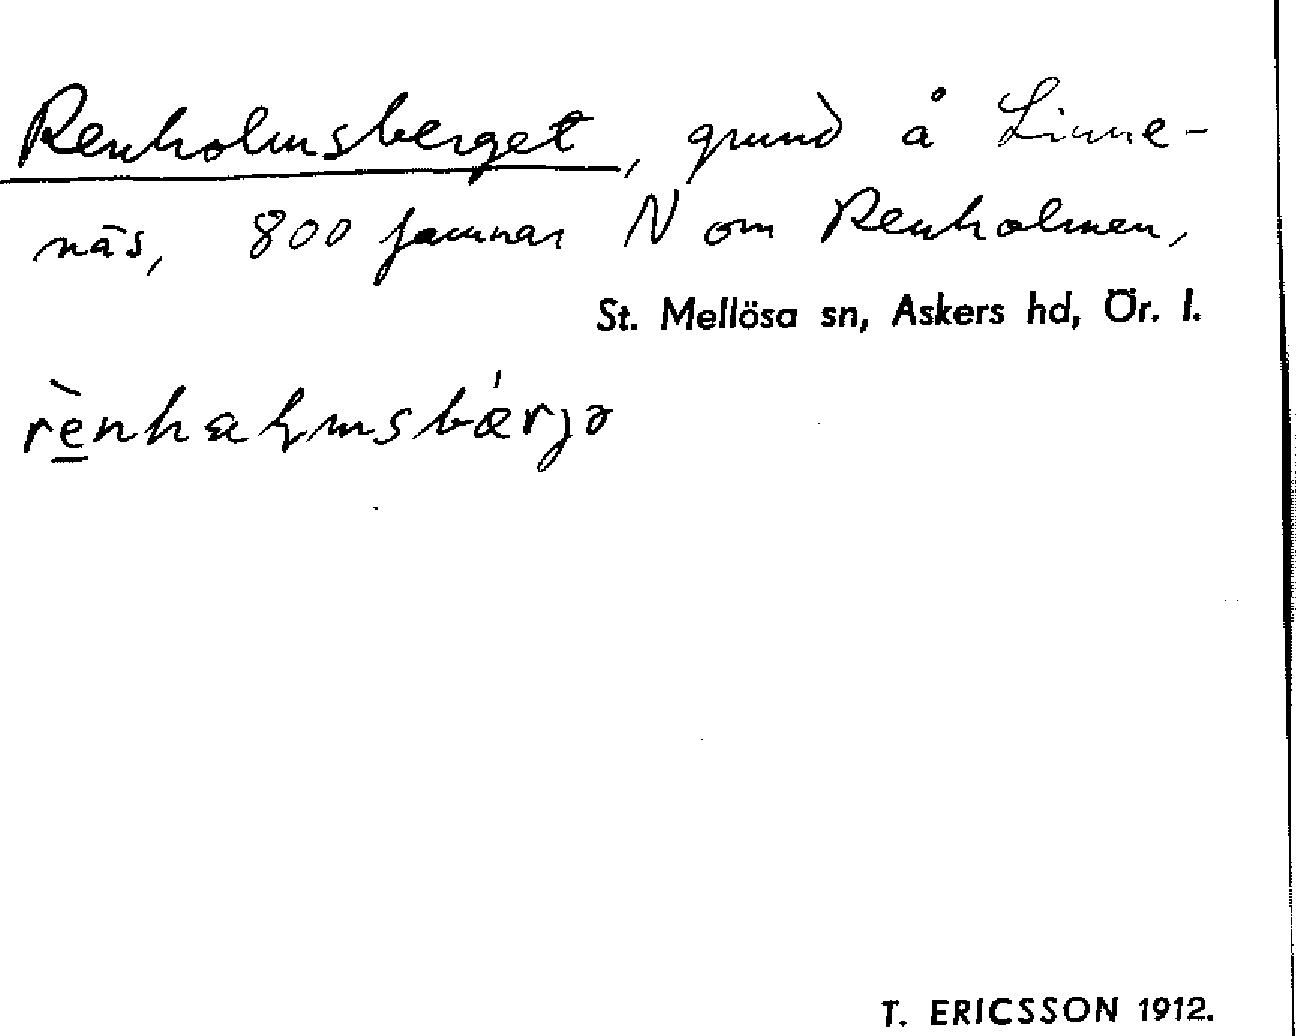 Renholmsberget, grund å Linne-
näs, 800 famnar N om Renholmen,
St. Mellösa sn, Askers hd, Ör. l.
rènhaɫmsbárjə
T. ERICSSON 1912.